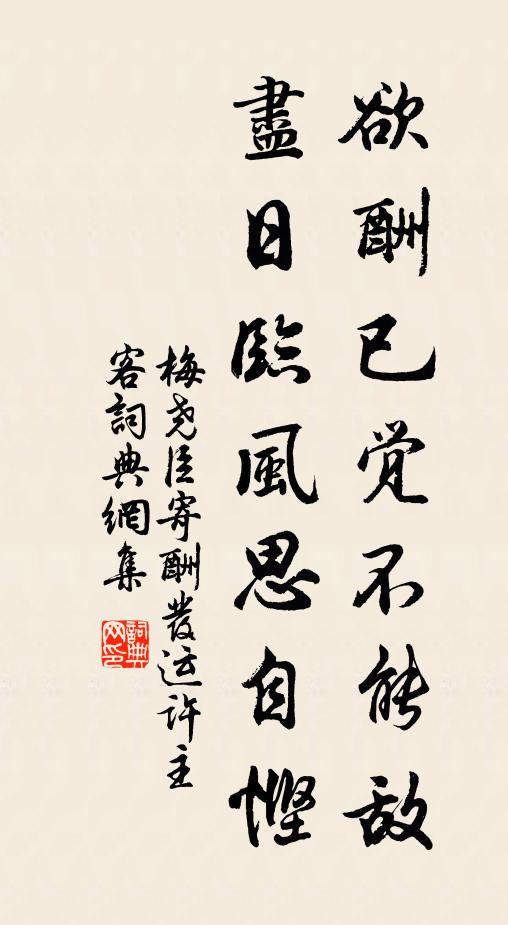 欲酬已觉不能敌
盡日臨風思自慳
梅尧臣寄酬發运许主
客詞典網集
詞典
网印